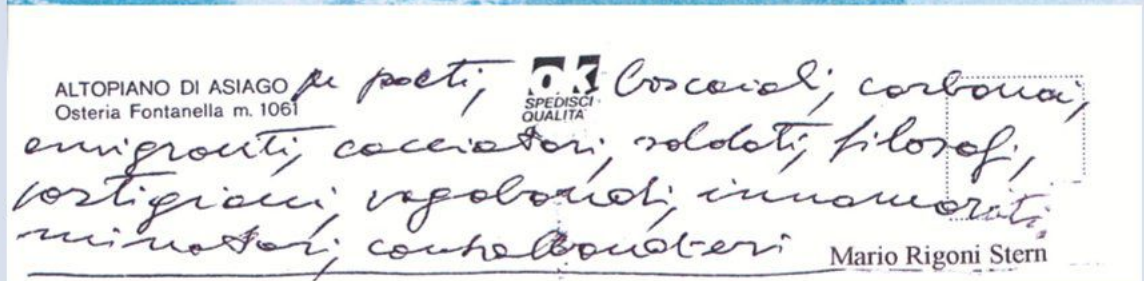 ALTOPIANO DI ASIAGO
Osteria Fontanella m. 1061
OK
SPEDISCI
QUALITA'
per poeti, boscaioli, carbonai,
emigranti, cacciatori, soldati, filosofi,
partigiani, vagabondi, innamorati,
minatori, contrabbandieri
Mario Rigoni Stern